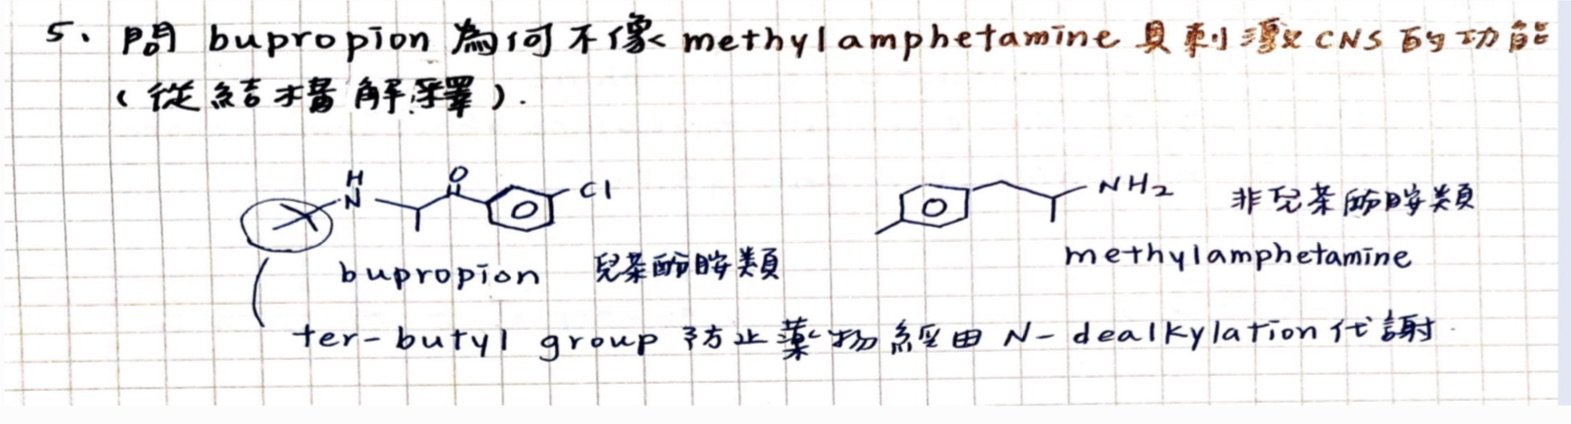 5、問 bupropion 為何不像 methylamphetamine 具刺激 CNS 的功能
(從結構解釋).
H
N O Cl NH₂ 非兒茶酚胺類
bupropion 兒茶酚胺類 methylamphetamine
ter-butyl group 防止藥物經由 N-dealkylation 代謝.